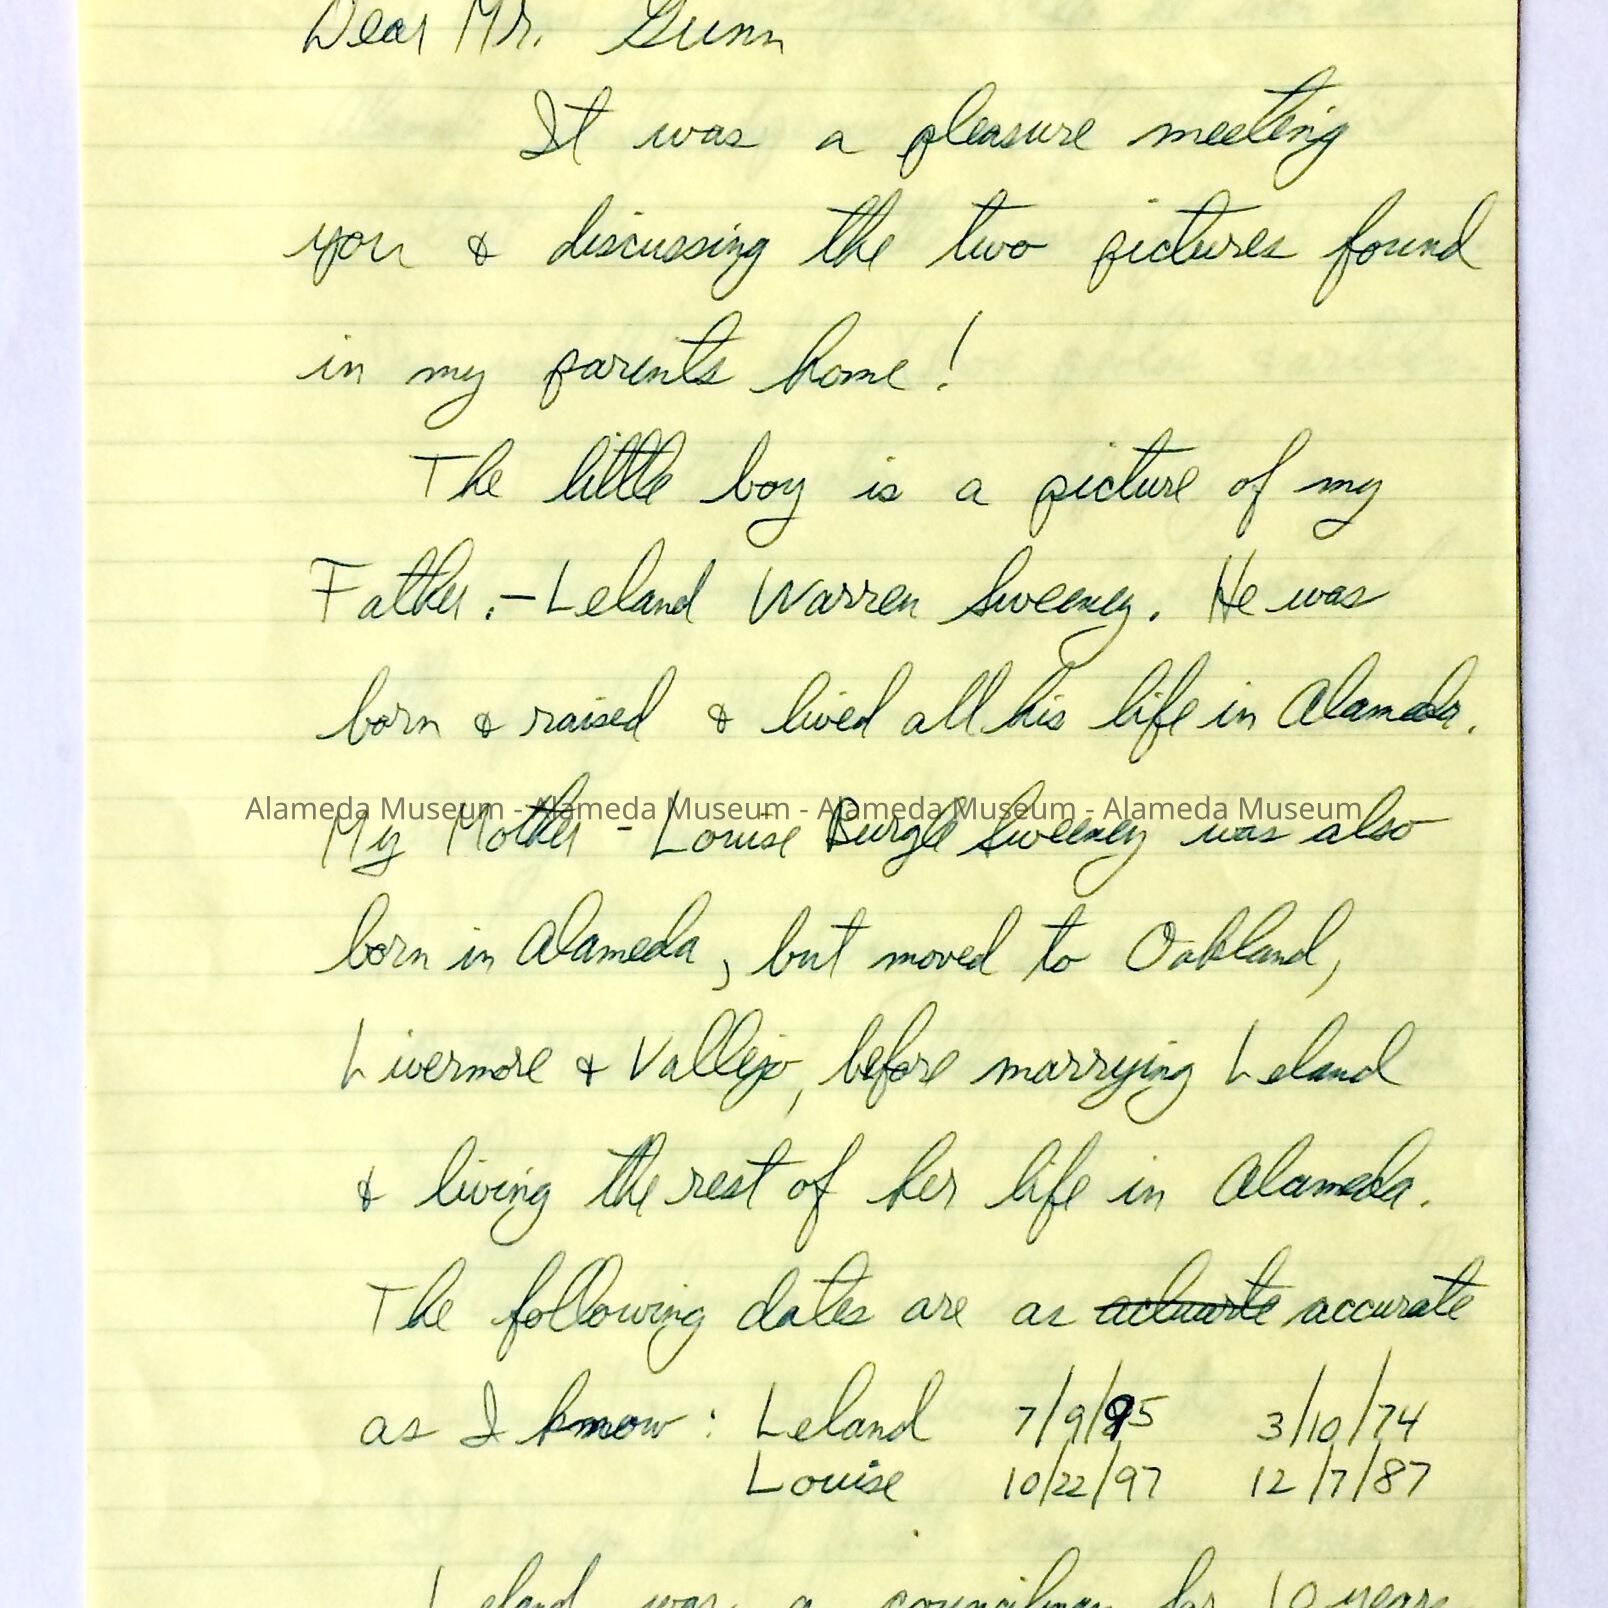 Dear Mr. Gunn
It was a pleasure meeting
you & discussing the two pictures found
in my parents home!
The little boy is a picture of my
Father. - Leland Warren Sweeney. He was
born & raised & lived all his life in Alameda.
Alameda Museum - Alameda Museum - Alameda Museum - Alameda Museum
My Mother - Louise Burgle Sweeney was also
born in Alameda, but moved to Oakland,
Livermore & Vallejo, before marrying Leland
& living the rest of her life in Alameda.
The following dates are as accurate
as I know: Leland 7/9/95 3/10/74
Louise 10/22/97 12/7/87
Leland was a councilman for 10 years